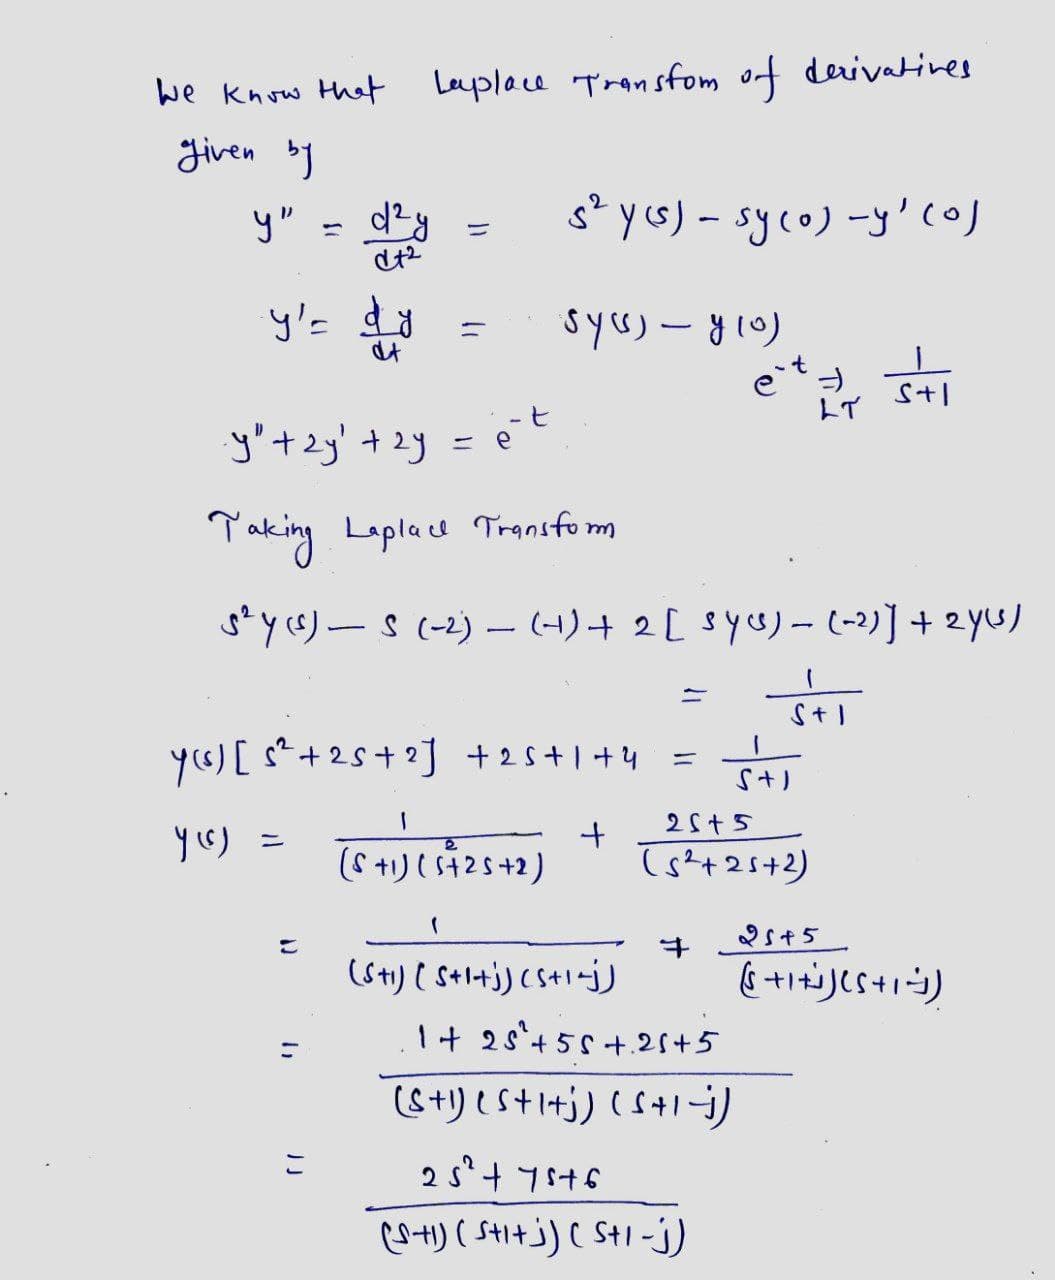 We know that Laplace Transfom of derivatives
given by
y" = d²y/dt² = s² y(s) - sy(0) - y'(0)
y' = dy/dt = sy(s) - y(0)
e^-t ⇒ LT 1/(s+1)
y" + 2y' + 2y = e^-t
Taking Laplace Transform
s² y(s) - s (-2) - (-1) + 2 [ sy(s) - (-2)] + 2y(s)
= 1/(s+1)
y(s) [ s² + 2s + 2] + 2s + 1 + 4 = 1/(s+1)
y(s) = 1/((s+1)(s²+2s+2)) + (2s+5)/(s²+2s+2)
= 1/((s+1)(s+1+j)(s+1-j)) + (2s+5)/((s+1+j)(s+1-j))
= (1 + 2s² + 5s + 2s + 5)/((s+1)(s+1+j)(s+1-j))
= (2s² + 7s + 6)/((s+1)(s+1+j)(s+1-j))